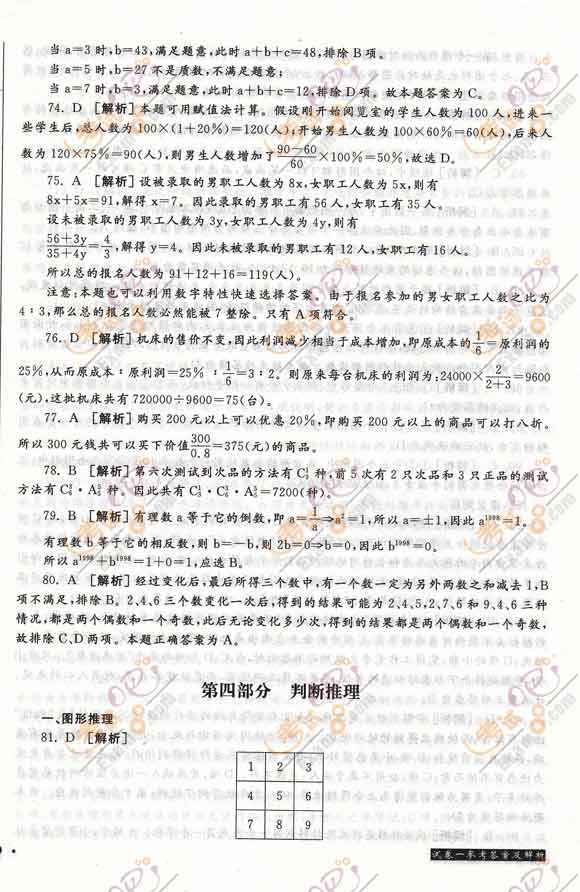 当a=3时,b=43,满足题意,此时a+b+c=48,排除B项。
当a=5时,b=27不是质数,不满足题意;
当a=7时,b=3,满足题意,此时a+b+c=12,排除D项。故本题答案为C。
74. D [解析]本题可用赋值法计算。假设刚开始阅览室的学生人数为100人,进来一
些学生后,总人数为100×(1+20%)=120(人);开始男生人数为100×60%=60(人),后来人
数为120×75%=90(人),则男生人数增加了\frac{90-60}{60}×100%=50%,故选D。
75. A [解析]设被录取的男职工人数为8x,女职工人数为5x,则有
8x+5x=91,解得x=7。因此录取的男职工有56人,女职工有35人。
设未被录取的男职工人数为3y,女职工人数为4y,则有
\frac{56+3y}{35+4y}=\frac{4}{3},解得y=4。因此未被录取的男职工有12人,女职工有16人。
所以总的报名人数为91+12+16=119(人)。
注意:本题也可以利用数字特性快速选择答案。由于报名参加的男女职工人数之比为
4:3,那么总的报名人数必然能被7整除。只有A项符合。
76. D [解析]机床的售价不变,因此利润减少相当于成本增加,即原成本的\frac{1}{6}=原利润的
25%,从而原成本:原利润=25%:\frac{1}{6}=3:2。则原来每台机床的利润为:24000×\frac{2}{2+3}=9600
(元),这批机床共有720000÷9600=75(台)。
77. A [解析]购买200元以上可以优惠20%,即购买200元以上的商品可以打八折。
所以300元钱共可以买下价值\frac{300}{0.8}=375(元)的商品。
78. B [解析]第六次测试到次品的方法有C¹₃种,前5次有2只次品和3只正品的测试
方法有C³₆·A⁵₅种。因此共有C¹₃·C³₆·A⁵₅=7200(种)。
79. B [解析]有理数a等于它的倒数,即a=\frac{1}{a}⇒a²=1,所以a=±1,因此a¹⁹⁹⁸=1。
有理数b等于它的相反数,则b=-b,则2b=0⇒b=0,因此b¹⁹⁹⁸=0。
所以a¹⁹⁹⁸+b¹⁹⁹⁸=1+0=1,应选B。
80. A [解析]经过变化后,最后所得三个数中,有一个数一定为另外两数之和减去1,B
项不满足,排除B。2、4、6三个数变化一次后,得到的结果可能为2、4、5,2、7、6和9、4、6三种
情况,都是两个偶数和一个奇数,此后无论变化多少次,得到的结果都是两个偶数和一个奇数,
故排除C、D两项。本题正确答案为A。
第四部分 判断推理
一、图形推理
81. D [解析]
1 2 3
4 5 6
7 8 9
试卷一参考答案及解析